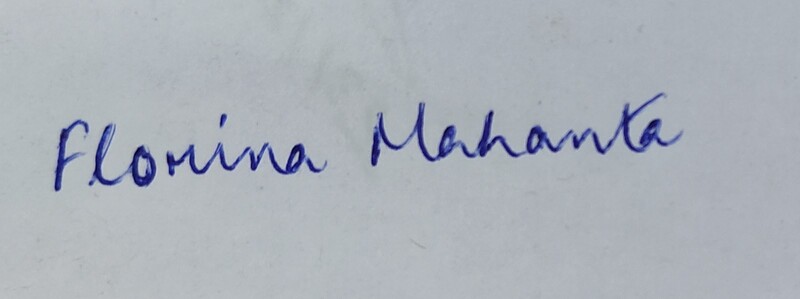 Florina Mahanta